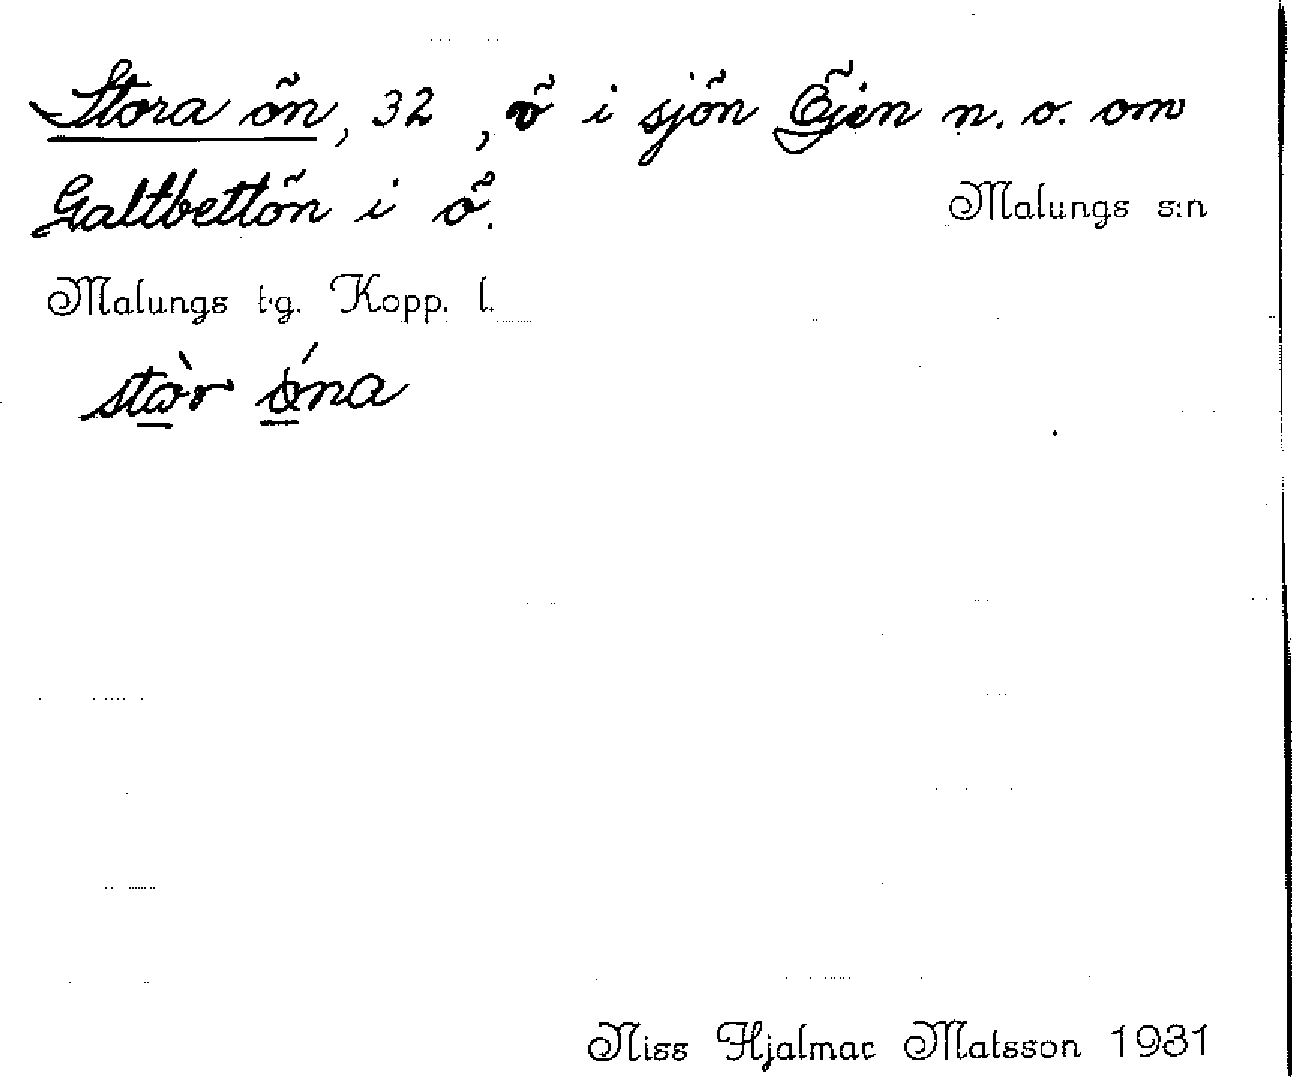 Stora ön, 32, ö i sjön Öjen n. o. om
Galtbettön i ö.
Malungs s:n
Malungs tg. Kopp. l.
stòr öna
Niss Hjalmar Matsson 1931